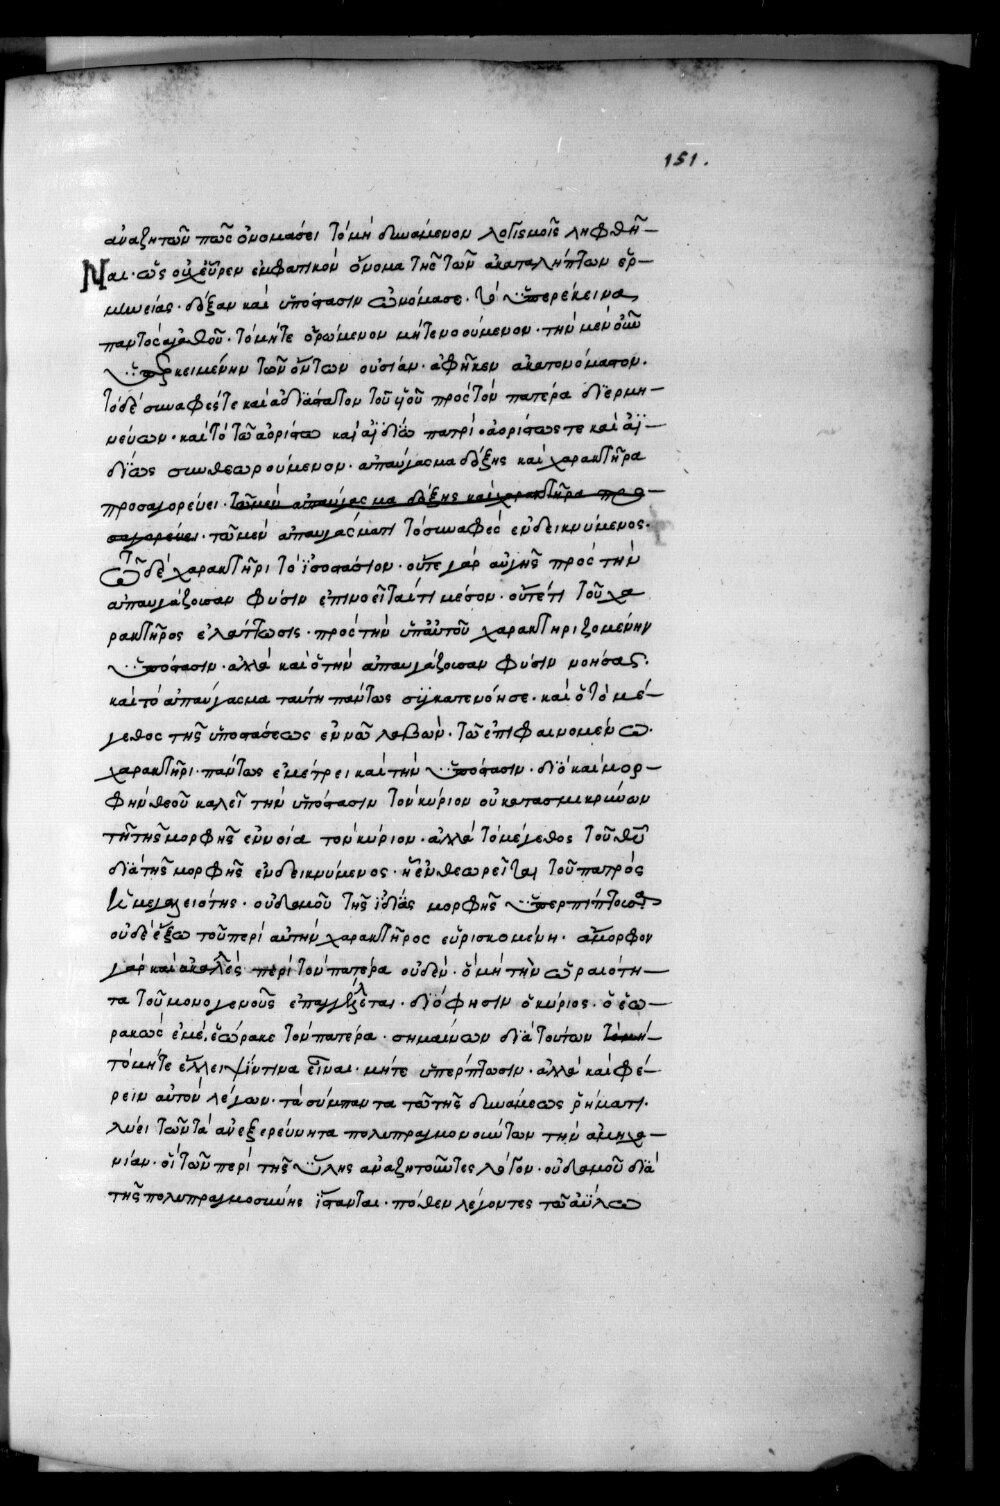 151.
ἀναζητῶν πῶς ὀνομάσει τὸ μὴ δυνάμενον λογισμοῖς ληφθῆ-
Ναι. ὡς οὐχ εὗρεν ἐμφατικὸν ὄνομα τῆς τῶν ἀκαταλήπτων ἑρ-
μηνείας. δόξαν καὶ ὑπόστασιν ὠνόμασε. τὸ ὑπερέκεινα
παντὸς ἀγαθοῦ. τὸ μήτε ὁρώμενον μήτε νοούμενον. τὴν μὲν οὖν
ὑπερκειμένην τῶν ὄντων οὐσίαν. ἀφῆκεν ἀκατονόμαστον.
τὸ δὲ συναφές τε καὶ ἀδιάστατον τοῦ υἱοῦ πρὸς τὸν πατέρα διερμη-
νεύων. καὶ τὸ τῷ ἀορίστω καὶ ἀϊδίω πατρὶ. ἀορίστως τε καὶ ἀϊ-
δίως συνθεωρούμενον. ἀπαύγασμα δόξης καὶ χαρακτῆρα
προσαγορεύει. τῶ μὲν ἀπαύγασμα δόξης καὶ χαρακτῆρα προ-
σαγορεύει. τῶ μὲν ἀπαυγάσματι τὸ συναφὲς ἐνδεικνύμενος.
τῶ δὲ χαρακτῆρι τὸ ἰσοστάσιον. οὔτε γὰρ αὐγῆς πρὸς τὴν
ἀπαυγάζουσαν φύσιν ἐπινοεῖταί τι μέσον. οὔτέ τι τοῦ χα
ρακτῆρος ἐλάττωσις. πρὸς τὴν ὑπ αὐτοῦ χαρακτηριζομένην
ὑπόστασιν. ἀλλὰ καὶ ὁ τὴν ἀπαυγάζουσαν φύσιν νοήσας.
καὶ τὸ ἀπαύγασμα ταύτη πάντως συγκατενόησε. καὶ ὁ τὸ μέ-
γεθος τῆς ὑποστάσεως ἐν νῶ λαβὼν. τῶ ἐπιφαινομένω.
χαρακτῆρι. πάντως ἐμέτρει καὶ τὴν ὑπόστασιν. διὸ καὶ μορ-
φὴν θεοῦ καλεῖ τὴν ὑπόστασιν τὸν κύριον οὐ κατασμικρύνων
τῆ τῆς μορφῆς ἐννοία τὸν κύριον. ἀλλὰ τὸ μέγεθος τοῦ θῦ
διὰ τῆς μορφῆς ἐνδεικνύμενος. ᾗ ἐνθεωρεῖται τοῦ πατρὸς
ἡ μεγαλειότης. οὐδαμοῦ τῆς ἰδίας μορφῆς ὑπερπίπτουσα
οὐδὲ ἔξω τοῦ περὶ αὐτὴν χαρακτῆρος εὑρισκομένη. ἄμορφον
γὰρ καὶ ἀκαλλὲς περὶ τὸν πατέρα οὐδὲν. ὃ μὴ τῆν ὡραιότη-
τα τοῦ μονογενοῦς ἐπαγγέλεται. διό φησιν ὁ κύριος. ὁ ἑω-
ρακὼς ἐμὲ. ἑώρακε τὸν πατέρα. σημαίνων διὰ τούτων τὸ μή-
τὸ μήτε ἔλλειψίν τινα εἶναι. μήτε ὑπέρπτωσιν. ἀλλὰ καὶ φέ-
ρειν αὐτὸν λέγων. τὰ σύμπαντα τῶ τῆς δυνάμεως ῥήματι.
λύει τῶν τὰ ἀνεξερεύνητα πολυπραγμονούντων τὴν ἀμηχα-
νίαν. οἳ τῶν περὶ τῆς ὕλης ἀναζητοῦντες λόγον. οὐδαμοῦ διὰ
τῆς πολυπραγμοσύνης ἵστανται. πόθεν λέγοντες τῶ ἀΰλω